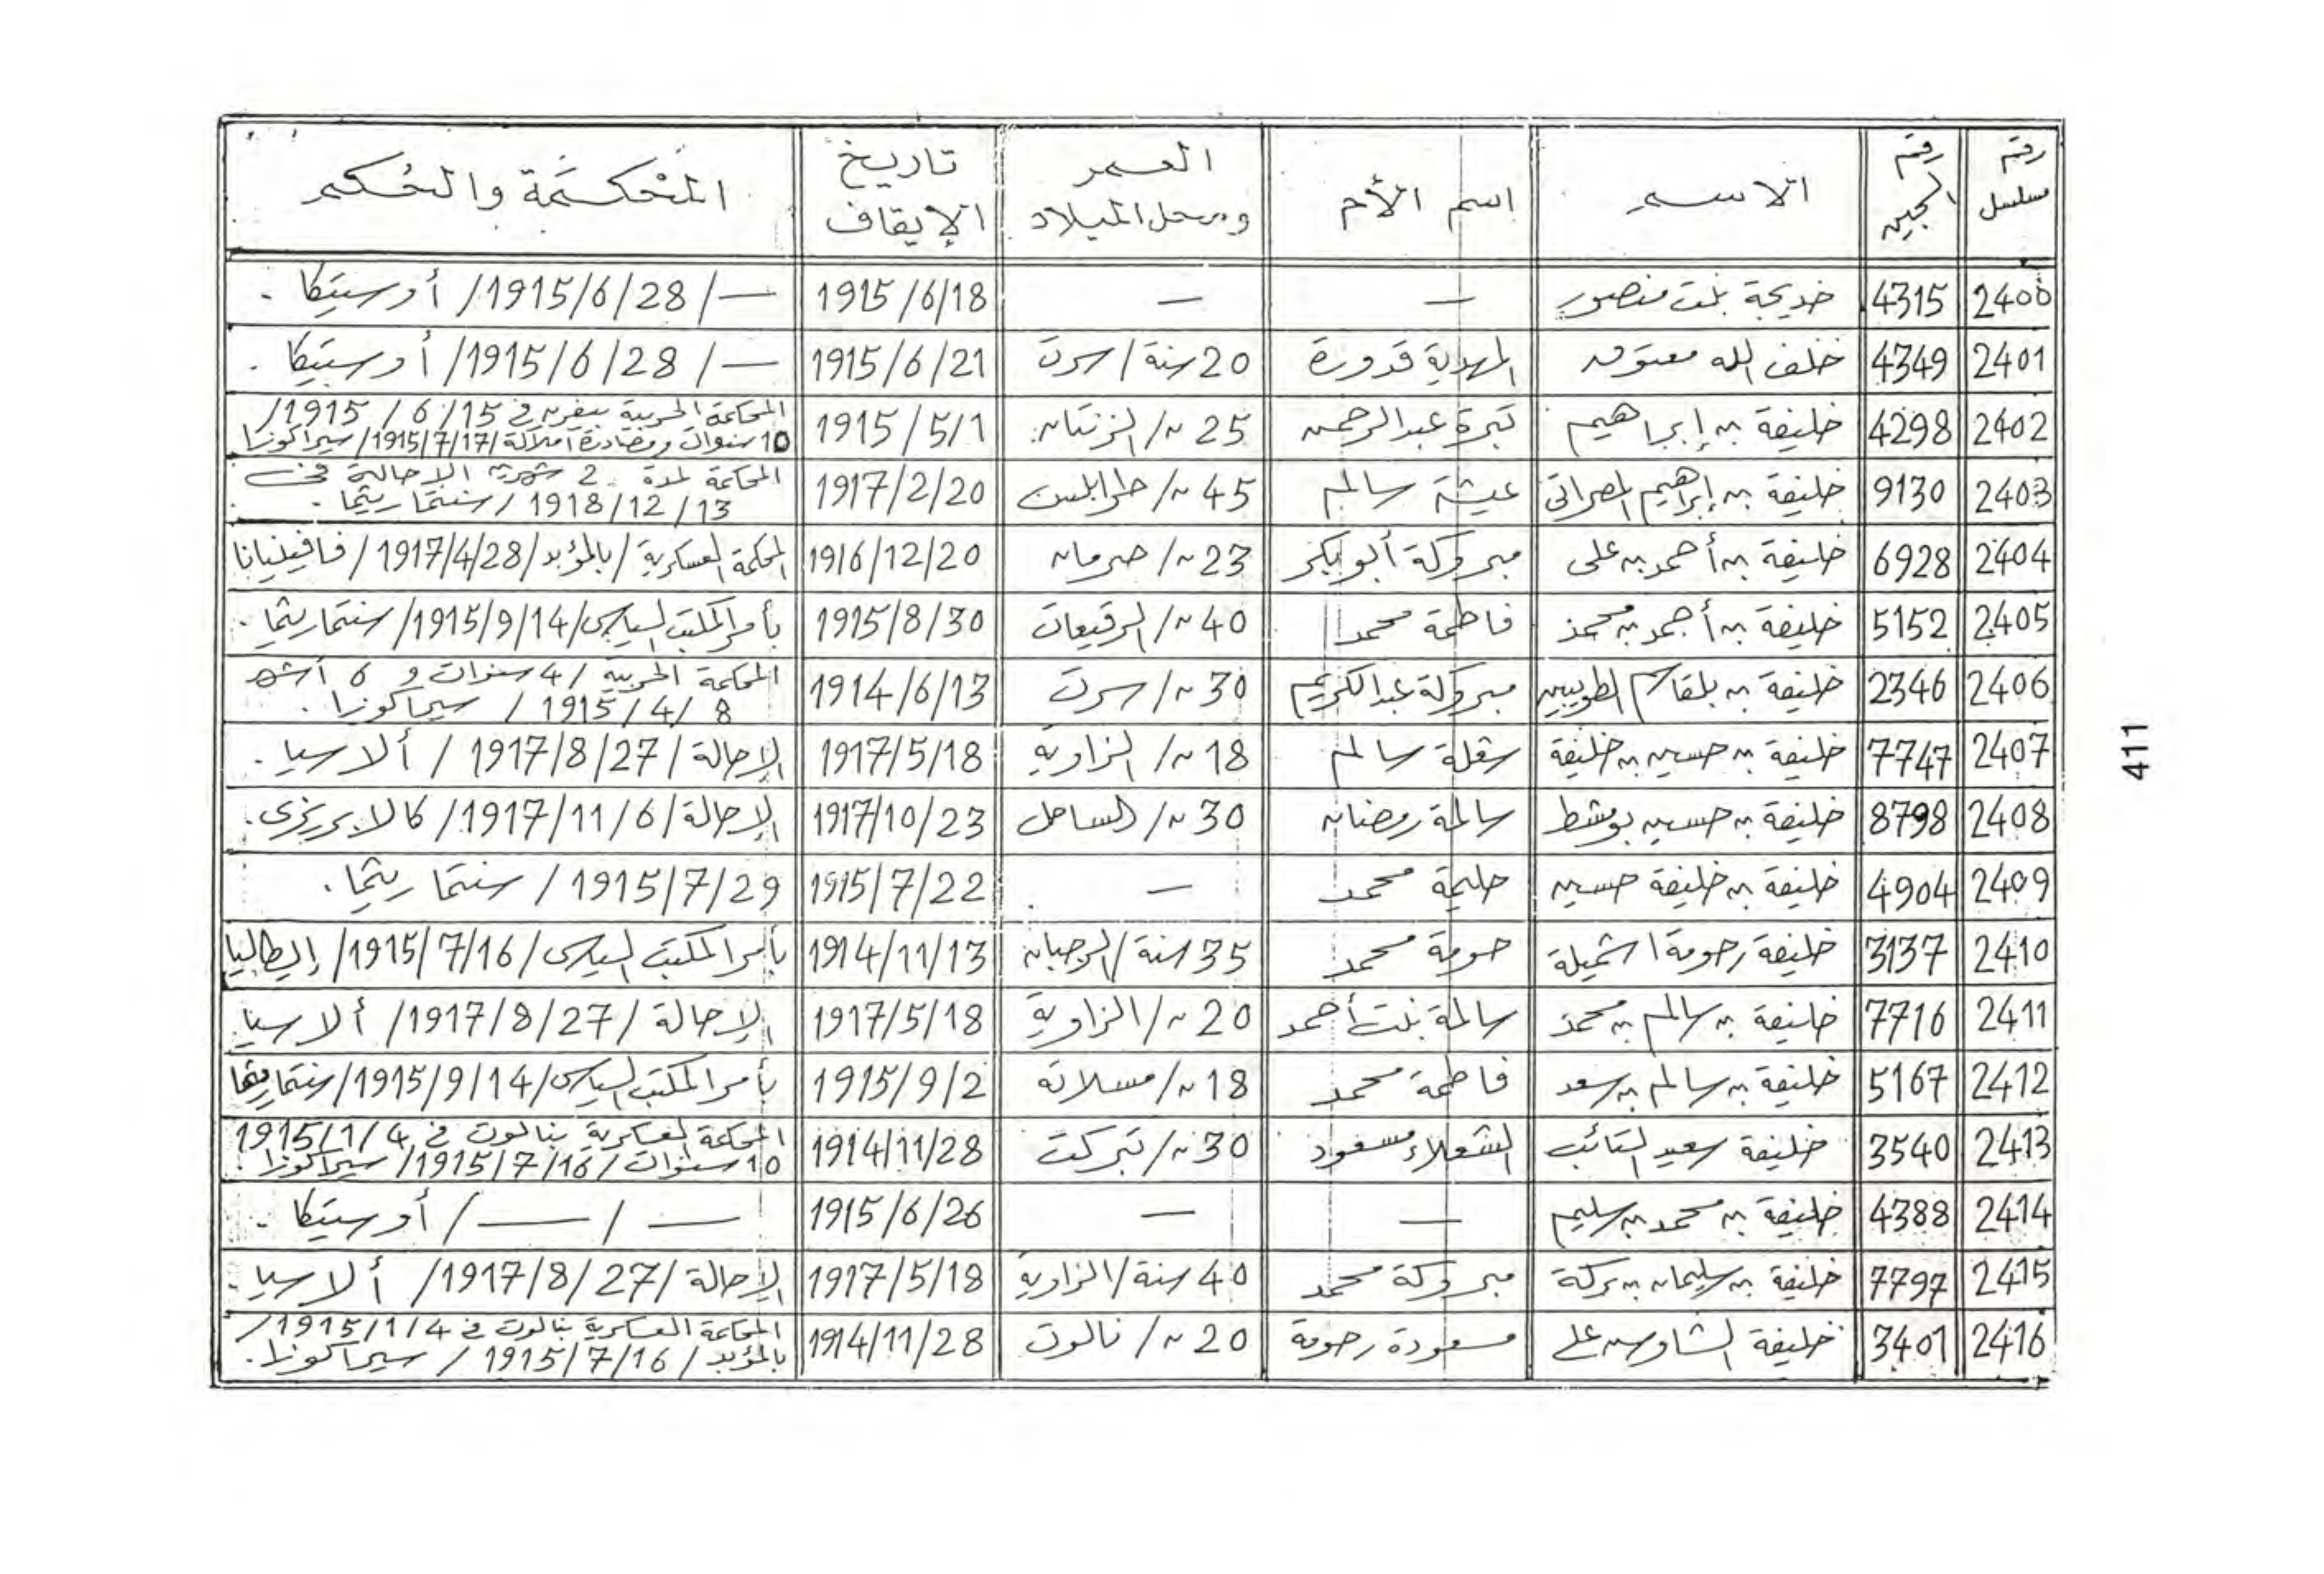 رقم مسلسل | رقم السجين | الاسم | اسم الأم | العمر ومحل الميلاد | تاريخ الإيقاف | المحكمة والحكم
2400 | 4315 | خديجة بنت منصور | — | — | 1915/6/18 | —/ 1915/6/28/ أوستيكا .
2401 | 4349 | خلف الله معتوق | المهدية قدورة | 20 سنة/ سرت | 1915/6/21 | —/ 1915/6/28/ أوستيكا .
2402 | 4298 | خليفة بن إبراهيم | كبرة عبد الرحمن | 25 س/ الزنتان | 1915/5/1 | المحكمة الحربية بيفرن في 15/ 6/ 1915/
10 سنوات ومصادرة أملاكه/ 1915/7/17/ سيراكوزا
2403 | 9130 | خليفة بن إبراهيم المصراتي | عيشة سالم | 45 س/ طرابلس | 1917/2/20 | المحاكمة لمدة 2 الإحالة في
13/ 12/ 1918/ سنتماريتما .
2404 | 6928 | خليفة بن أحمد بن علي | مبروكة أبوبكر | 23 س/ صرمان | 1916/12/20 | المحكمة العسكرية/ بالمؤبد/ 1917/4/28/ فافينيانا
2405 | 5152 | خليفة بن أحمد بن محمد | فاطمة محمد | 40 س/ الرقيعات | 1915/8/30 | بأمر المكتب السياسي/ 1915/9/14/ سنتماريتما .
2406 | 2346 | خليفة بن بلقاسم | مبروكة عبدالكريم | 30 س/ سرت | 1914/6/13 | المحكمة الحربية/ 4 سنوات و 6 أشهر
8/ 4/ 1915/ سيراكوزا .
2407 | 7747 | خليفة بن حسين بن خليفة | سالم | 18 س/ الزاوية | 1917/5/18 | الإحالة/ 1917/8/27/ ألاسيا .
2408 | 8798 | خليفة بن حسين بومشط | سالمة رمضان | 30 س/ الساحل | 1917/10/23 | الإحالة/ 1917/11/6/ كالابريزي .
2409 | 4904 | خليفة بن خليفة حسين | حليمة محمد | — | 1915/7/22 | 1915/7/29/ سنتماريتما .
2410 | 3137 | خليفة رحومة اشميلة | حومة محمد | 35 سنة/ الرجبان | 1914/11/13 | بأمر المكتب السياسي/ 1915/7/16/ إيطاليا
2411 | 7716 | خليفة بن سالم بن محمد | سالمة بنت أحمد | 20 س/ الزاوية | 1917/5/18 | الإحالة/ 1917/8/27/ ألاسيا
2412 | 5167 | خليفة بن سالم بن سعد | فاطمة محمد | 18 س/ مسلاتة | 1915/9/2 | بأمر المكتب السياسي/ 1915/9/14/ سنتماريتما
2413 | 3540 | خليفة سعيد التائب | الشعلاء مسعود | 30 س/ تبركت | 1914/11/28 | المحكمة العسكرية بنالوت في 1915/1/4
10 سنوات/ 1915/7/16/ سيراكوزا .
2414 | 4388 | خليفة بن محمد بن سليم | — | — | 1915/6/26 | — / — / أوستيكا .
2415 | 7797 | خليفة بن سليمان بن بركة | مبروكة محمد | 40 سنة/ الزاوية | 1917/5/18 | الإحالة/ 1917/8/27/ ألاسيا .
2416 | 3401 | خليفة الشاوش علي | مسعودة رحومة | 20 س/ نالوت | 1914/11/28 | المحكمة العسكرية بنالوت في 1915/1/4/
بالمؤبد/ 1915/7/16/ سيراكوزا .
411